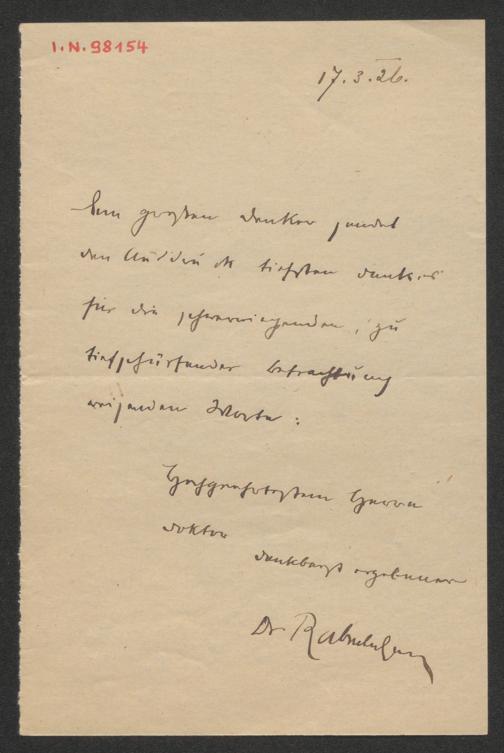 I.N. 98154
17.3.26.
Dem großen Denker sendet
den Ausdruck tiefsten Dankes
für die schwerwiegenden, zu
tiefschürfender Betrachtung
weisenden Worte:
Hochgeehrtestem Herrn
Doktor
dankbarst ergebener
Dr